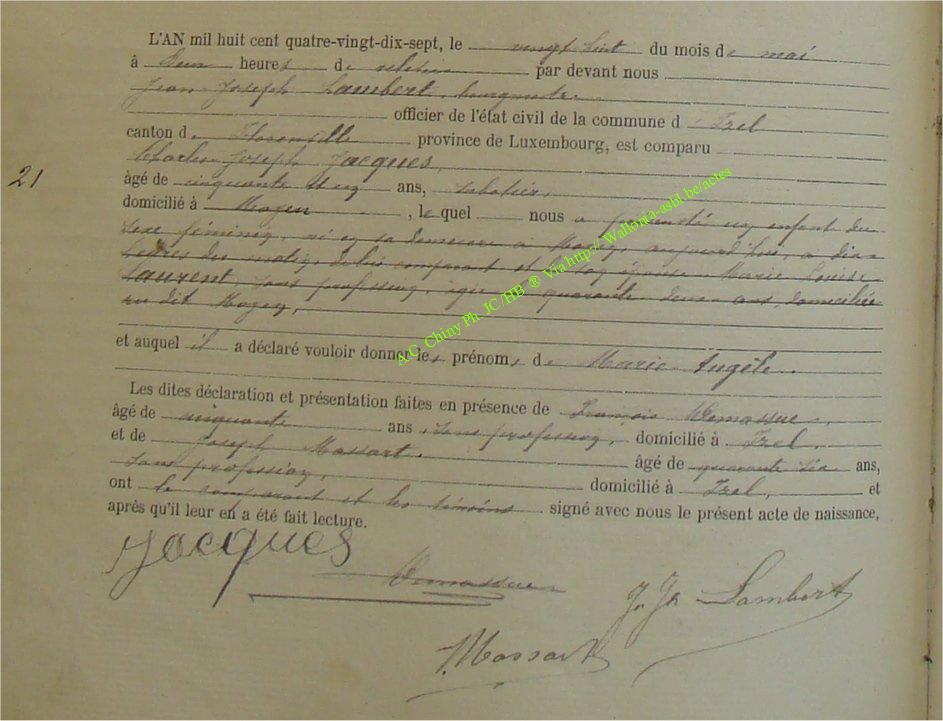 L'AN mil huit cent quatre-vingt-dix-sept, le vingt huit du mois de mai
à heures de relevée par devant nous
Jean Joseph Lambert, bourgmestre
officier de l'état civil de la commune d' Izel
canton de Florenville province de Luxembourg, est comparu
Charles Joseph Jacques,
21
âgé de cinquante et un ans, sabotier,
domicilié à Moyen , lequel nous a présenté un enfant du
sexe féminin, né en sa demeure à Moyen, aujourd'hui, à dix
heures du matin, de lui comparant et de son épouse Marie Louise
Laurent, sans profession, âgée de quarante deux ans, domiciliée
au dit Moyen,
et auquel il a déclaré vouloir donner les prénoms de Marie Angèle.
Les dites déclaration et présentation faites en présence de François Demassue,
âgé de cinquante ans, sans profession, domicilié à Izel,
et de Joseph Massart. âgé de quarante six ans,
sans profession, domicilié à Izel, et
ont le comparant et les témoins signé avec nous le présent acte de naissance,
après qu'il leur en a été fait lecture.
Jacques
Demassue
J. Jh Lambert
J. Massart
A.C. Chiny Ph. JC/HB ® Via http:// Wallonia-asbl.be/actes